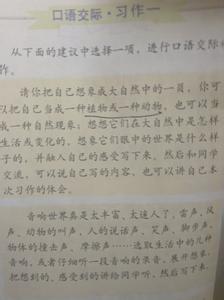 口语交际·习作一
从下面的建议中选择一项，进行口语交际
作。
请你把自己想象成大自然中的一员，你可
以把自己当成一种植物或一种动物，也可以当
成一种自然现象；想想它们在大自然中是怎样
生活或变化的，想象它们眼中的世界是什么样
子的，并融入自己的感受写下来，然后和同学
交流，可以说自己写的内容，也可以讲自己本
次习作的体会。
音响世界真是太丰富、太迷人了，雷声、风
声、动物的叫声、人的说话声、笑声、脚步声、
物体的撞击声、摩擦声……选取生活中的几种
音响，或者仔细听一段音响的录音，展开想象，
把想到的、感受到的讲给同学听，然后写下来。